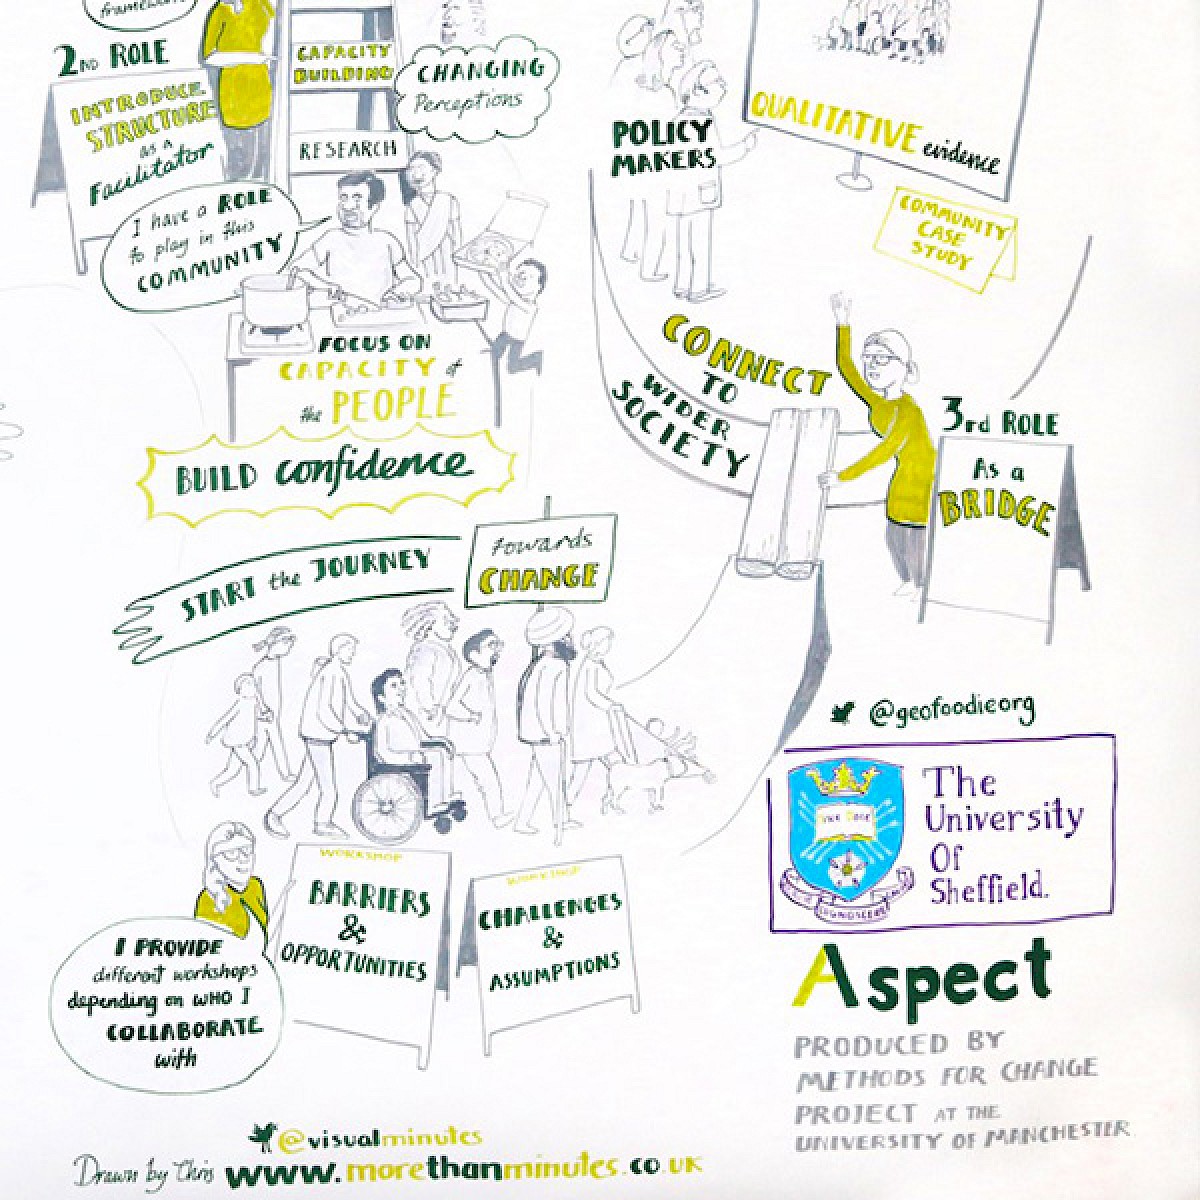 framework
2ND ROLE
INTRODUCE
STRUCTURE
as a
Facilitator
CAPACITY
BUILDING
RESEARCH
CHANGING
Perceptions
I have a ROLE
to play in this
COMMUNITY
FOCUS ON
CAPACITY of
the PEOPLE
BUILD confidence
START the JOURNEY
towards
CHANGE
POLICY
MAKERS
QUALITATIVE evidence
COMMUNITY
CASE
STUDY
CONNECT
TO
WIDER
SOCIETY
3rd ROLE
As a
BRIDGE
WORKSHOP
BARRIERS
&
OPPORTUNITIES
WORKSHOP
CHALLENGES
&
ASSUMPTIONS
I PROVIDE
different workshops
depending on WHO I
COLLABORATE
with
@geofoodieorg
The
University
Of
Sheffield.
Aspect
PRODUCED BY
METHODS FOR CHANGE
PROJECT AT THE
UNIVERSITY OF MANCHESTER.
@visualminutes
Drawn by Chris www.morethanminutes.co.uk